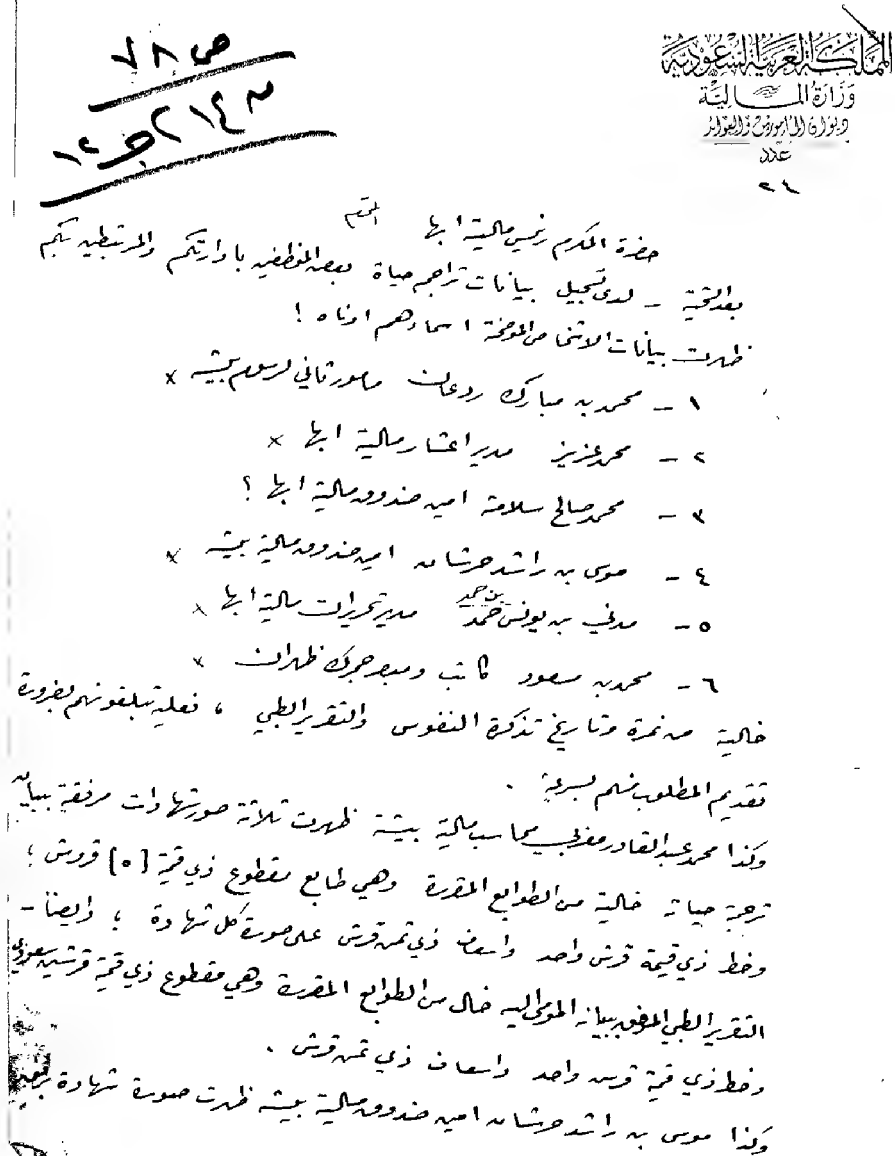 المملكة العربية السعودية
وزارة المالية
ديوان المأمورين والعوايد
عدد
٢٤
ص ٧٨
٢١٤ ج ١٢
حضرة المكرم رئيس مالية ابها المحترم
بعد التحية - لدى تسجيل بيانات تراجم حياة بعض الموظفين بادارتكم والمرتبطين بكم
ظهرت بيانات الاشخاص الموضحة اسماءهم ادناه !
١ - محمد بن مبارك ردعان مامور ثاني لرسوم بيشه ×
٢ - محمد عزيز مدير اعشار مالية ابها ×
٣ - محمد صالح سلامة امين صندوق مالية ابها ؟
٤ - موسى بن راشد حرشان امين صندوق مالية بيشه ×
٥ - مدني بن يونس بن حمد حمد مدير تحريرات مالية ابها ×
٦ - محمد بن مسعود كاتب ومبصر جمرك ظهران ×
خالية من نمرة وتاريخ تذكرة النفوس والتقرير الطبي ، فعليه تبلغونهم بضرورة
تقديم المطلوب منهم بسرعة .
وكذا محمد عبد القادر مغربي محاسب مالية بيشة ظهرت ثلاثة صور شهادات مرفقة ببيان
ترجمة حياته خالية من الطوابع المقررة وهي طابع مقطوع ذي قيمة [٥] قروش ؛
وخط ذي قيمة قرش واحد واسعاف ذي ثمن قرش على صورة كل شهادة ؛ وايضا -
التقرير الطبي المرفق ببيانه المومى اليه خال من الطوابع المقررة وهي مقطوع ذي قيمة قرشين سعودي
وخط ذي قيمة قرش واحد واسعاف ذي ثمن قرش .
وكذا موسى بن راشد حرشان امين صندوق مالية بيشه ظهرت صورة شهادة